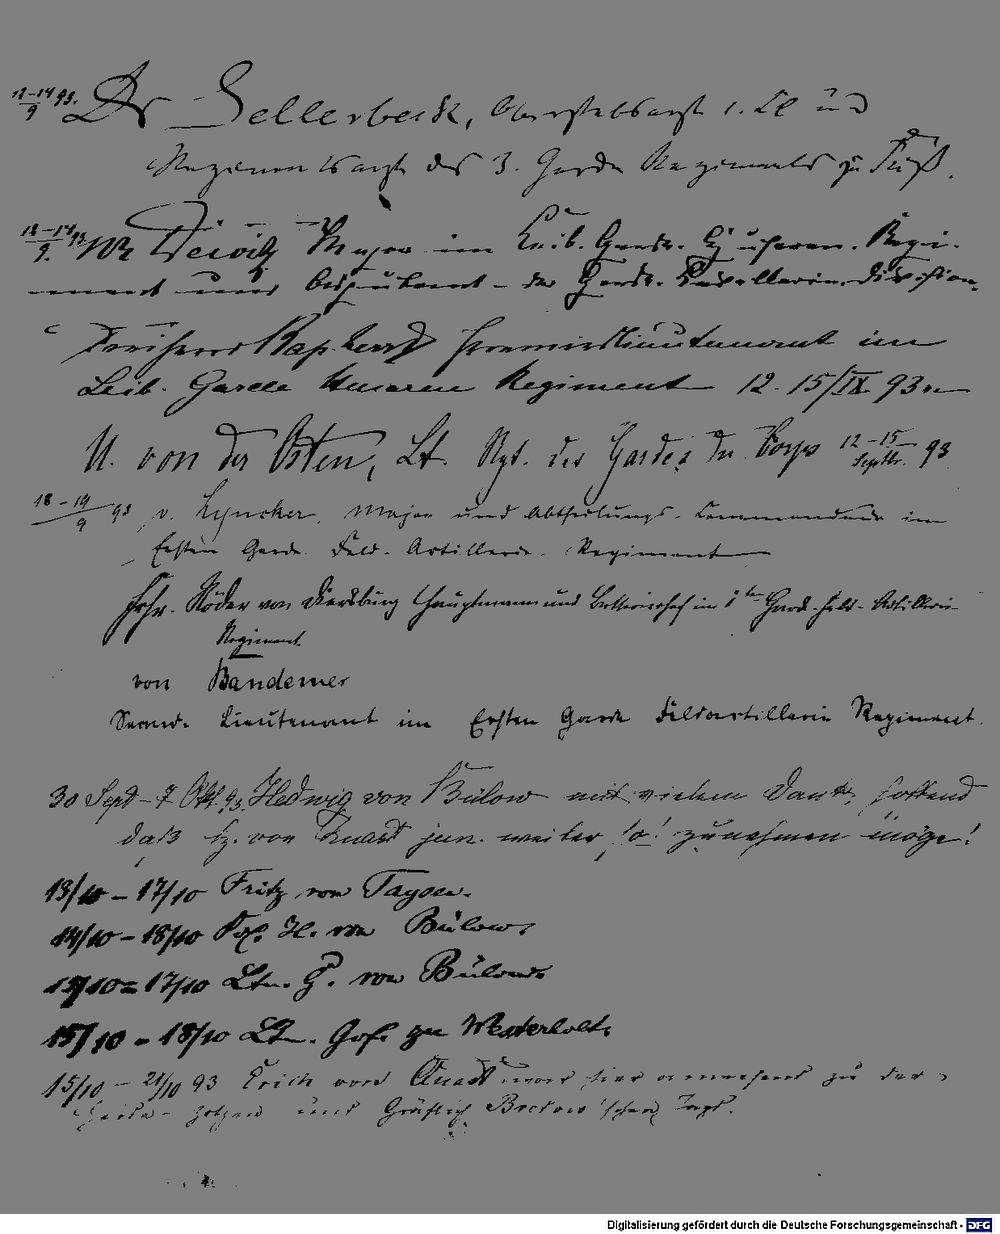 12–14/9 93. Dr Sellerbeck, Oberstabsarzt 1. Cl und
Regimentsarzt des 3. Garde Regiments zu Fuß.
12–14/9. 93 von Dewitz Major im Leib. Garde. Husaren. Regi-
ment und Adjudant der Garde. Cavallerie. Division.
Freiherr Kap-herr Premierlieutenant im
Leib. Garde Husaren Regiment 12. 15/IX 93.
U. von der Osten, Lt. Rgt. der Gardes du Corps 12–15 Septbr. 93
18–19/9 93 v. Lyncker, Major und Abtheilungs-Commandeur im
Ersten Garde Feld-Artillerie-Regiment
Frhr. Röder von Diersburg Hauptmann und Batteriechef im 1ten Garde-Feld-Artillerie-
Regiment.
von Bandemer
Second-Lieutenant im Ersten Garde Feldartillerie Regiment.
30 Sept–7 Okt. 93. Hedwig von Bülow mit vielem Dank, hoffend
daß H. von Quast jun. weiter so! zunehmen möge!
13/10 – 17/10 Fritz von Taysen.
14/10 – 18/10 H. von Bülow.
15/10 = 17/10 Ltn. G. von Bülow.
15/10 – 18/10 Ltn. Grf. zu Westerholt.
15/10 – 21/10 93 Erich von Quast war hier anwesend zu der
und Gräflich Bredow'schen Jagd.
Digitalisierung gefördert durch die Deutsche Forschungsgemeinschaft - DFG